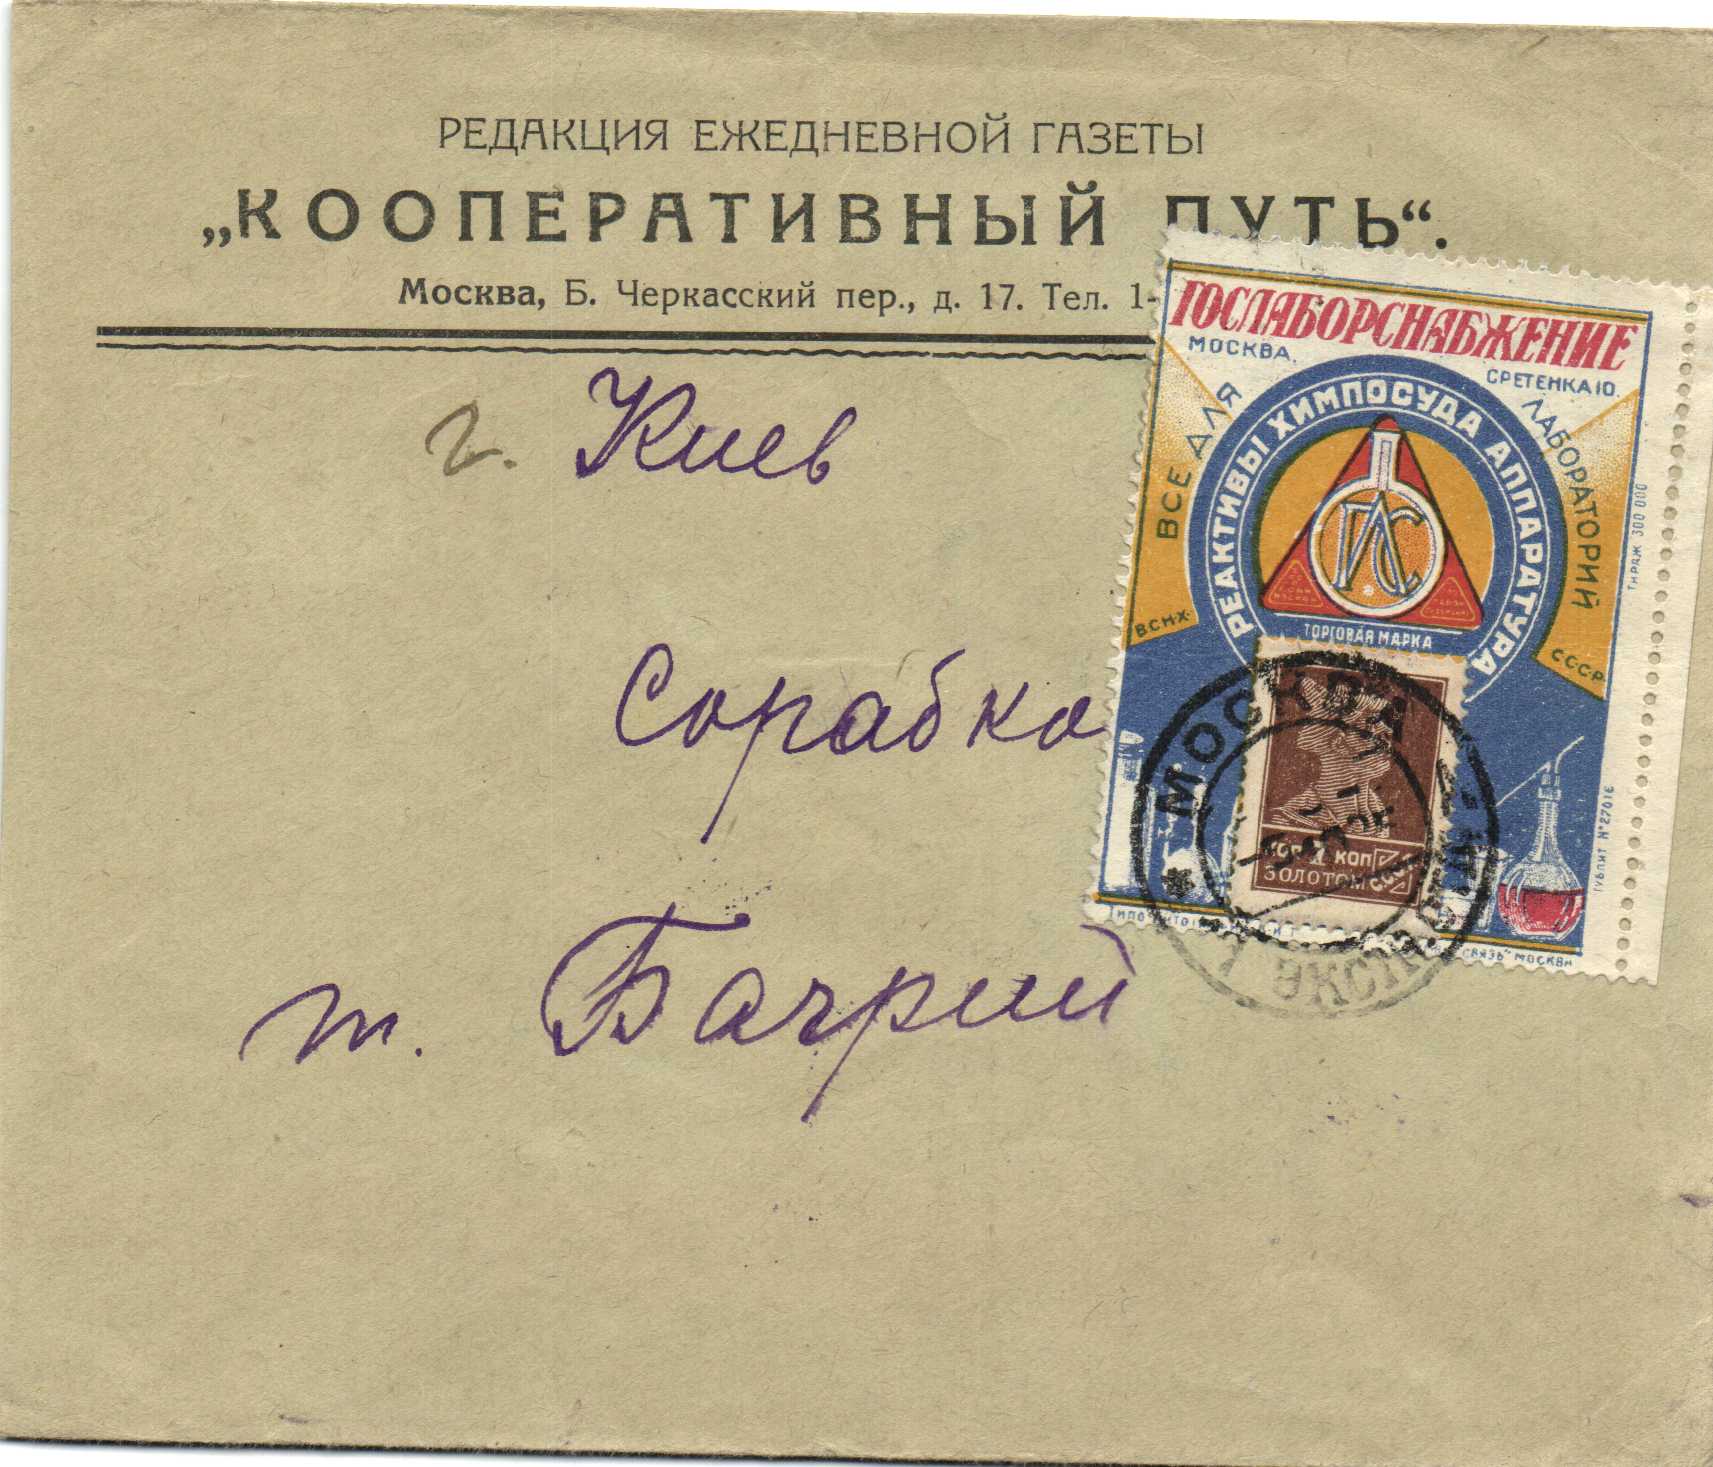 РЕДАКЦИЯ ЕЖЕДНЕВНОЙ ГАЗЕТЫ
„КООПЕРАТИВНЫЙ ПУТЬ“.
Москва, Б. Черкасский пер., д. 17. Тел. 1-
г. Киев
Сорабко
т. Багрий
ГОСЛАБОРСНАБЖЕНИЕ
МОСКВА.
СРЕТЕНКА 10.
ВСЕ ДЛЯ ЛАБОРАТОРИЙ
РЕАКТИВЫ ХИМПОСУДА АППАРАТУРА
ГЛС
ТОРГОВАЯ МАРКА
В.С.Н.Х.
С.С.С.Р.
ТИРАЖ 300 000
ГУБЛИТ № 27016
СВЯЗЬ" МОСКВА
КОП
ЗОЛОТОМ
СССР
МОСКВА
ЭКСП